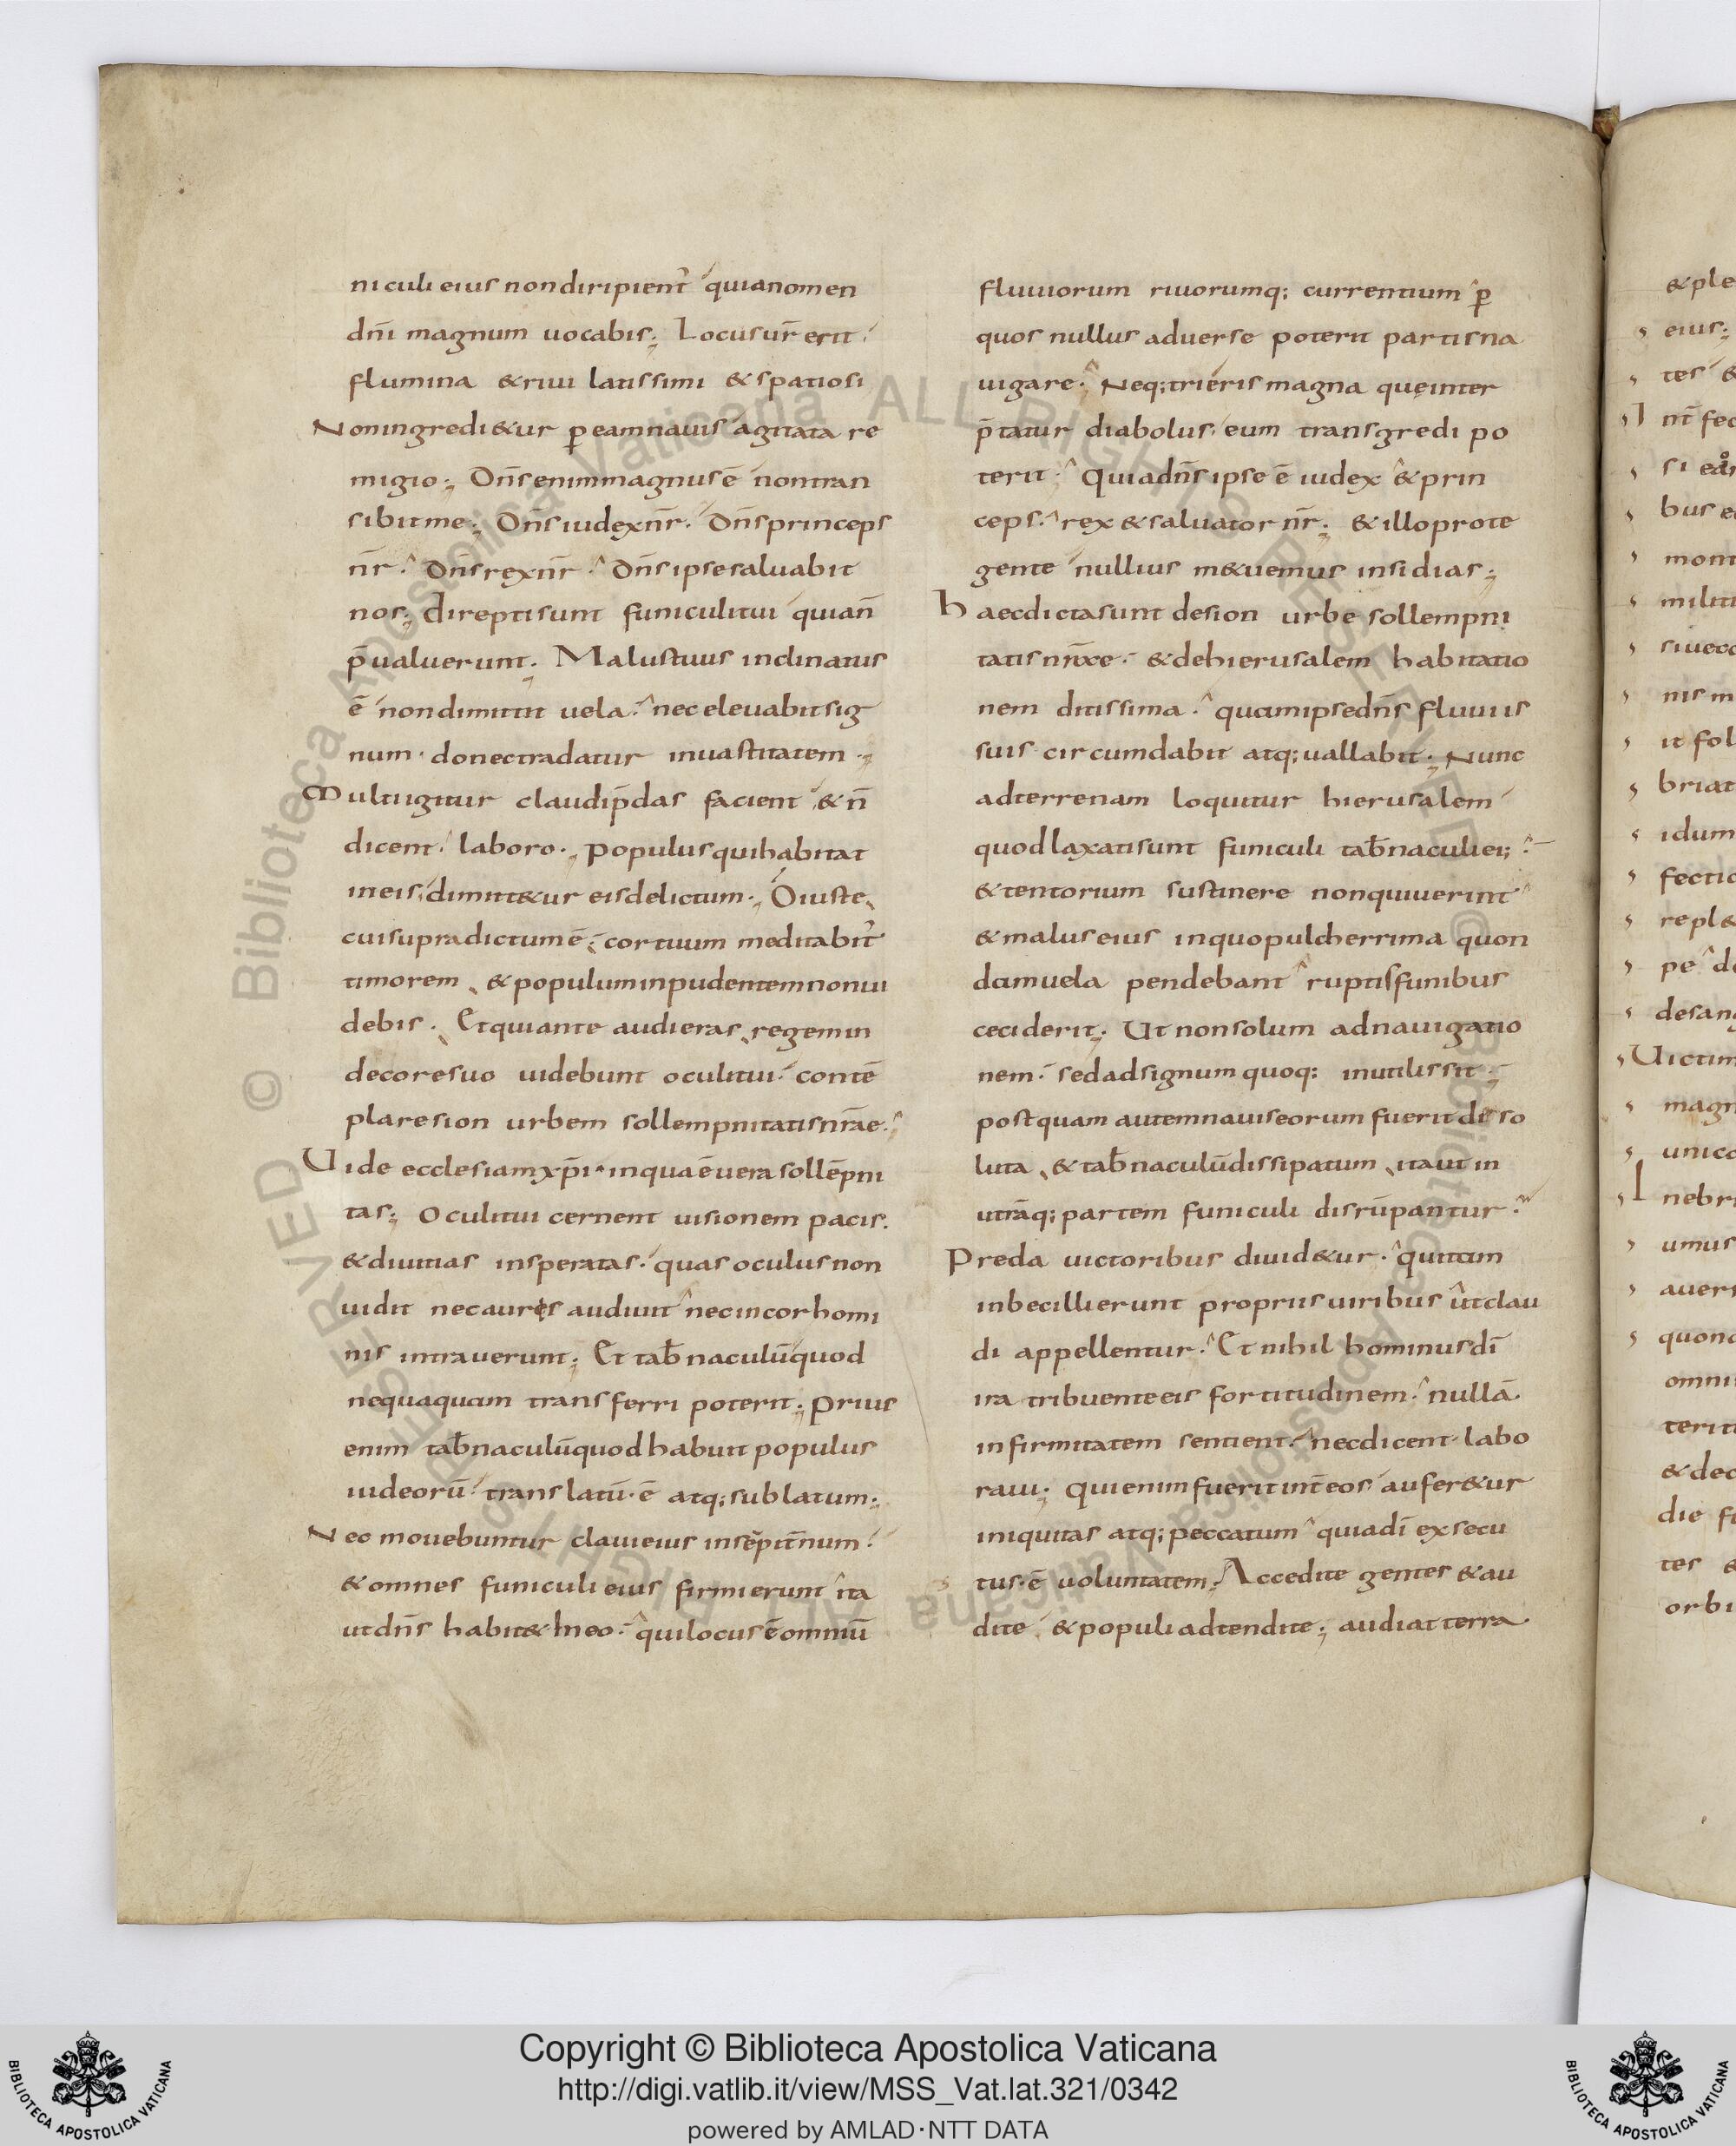 niculi eius non diripient̃ quia nomen
dñi magnum uocabis; Locus ur̃ erit
flumina & riui latissimi & spatiosi
Non ingredi&ur p̱ eam nauis agitata re
migio; Dñs enim magnus ē non tran
sibit me; Dñs iudex nr̃. Dñs princeps
nr̃. Dñs rex nr̃. Dñs ipse saluabit
nos; direpti sunt funiculi tui quia ñ
p̄ualuerunt; Malus tuus inclinatus
ē non dimittit uela. nec eleuabit sig
num. donec tradatur in uastitatem.;
Multi igitur claudi p̄das facient & ñ
dicent. laboro.; populus qui habitat
in eis dimitt&ur eis delictum.; O iuste
cui supra dictum ē, cor tuum meditabit̃
timorem, & populum inpudentem non ui
debis. Et quia ante audieras, regem in
decore suo uidebunt oculi tui. contē
plare sion urbem sollempnitatis nr̄ae.
Uide ecclesiam xp̄i. in qua ē uera sollēpni
tas; Oculi tui cernent uisionem pacis.
& diuitias insperatas. quas oculus non
uidit nec aures audiuit nec in cor homi
nis intrauerunt; Et tab̄naculū quod
nequaquam transferri poterit; prius
enim tab̄naculū quod habuit populus
iudeorū translatū. ē atq; sublatum;
Nec mouebuntur claui eius in sẽpit̄num.
& omnes funiculi eius firmi erunt ita
ut dñs habit& in eo. qui locus ē omniū
fluuiorum riuorumq; currentium p̱
quos nullus aduerse poterit partis na
uigare. Neq; trieris magna quę inter
p̄tatur diabolus eum transgredi po
terit. Quia dñs ipse ē iudex & prin
ceps. rex & saluator nr̃; & illo prote
gente nullius m&uemus insidias;
haec dicta sunt de sion urbe sollempni
tatis nr̄ae. & de hierusalem habitatio
nem ditissima. quam ipse dñs fluuiis
suis circumdabit atq; uallabit; Nunc
ad terrenam loquitur hierusalem
quod laxati sunt funiculi tab̄naculi ei;
& tentorium sustinere non quiuerint
& malus eius in quo pulcherrima quon
dam uela pendebant ruptis funibus
ceciderit; Ut non solum ad nauigatio
nem. sed ad signum quoq; inutilis sit;
postquam autem nauis eorum fuerit diso
luta, & tab̄naculū dissipatum, ita ut in
utrāq; partem funiculi disrūpantur.
Preda uictoribus diuid&ur. qui tam
inbecilli erunt propriis uiribus ut clau
di appellentur. Et nihil hominus dī
ira tribuente eis fortitudinem. nullā
infirmitatem sentient. nec dicent labo
raui; qui enim fuerit int̄ eos aufer&ur
iniquitas atq; peccatum quia dī exsecu
tus. ē uoluntatem; Accedite gentes & au
dite & populi adtendite; audiat terra
& ple
eius;
tes &
nt̄ fec
bus e
mont
milit
nis m
it fol
briat
idum
fectio
repl&
pe de
desang
Uictim
magn
unico
nebri
umus
auers
quond
omni
terit
& dec
die fi
tes &
orbi
Copyright © Biblioteca Apostolica Vaticana
http://digi.vatlib.it/view/MSS_Vat.lat.321/0342
powered by AMLAD·NTT DATA
BIBLIOTECA APOSTOLICA VATICANA
BIBLIOTECA APOSTOLICA VATICANA